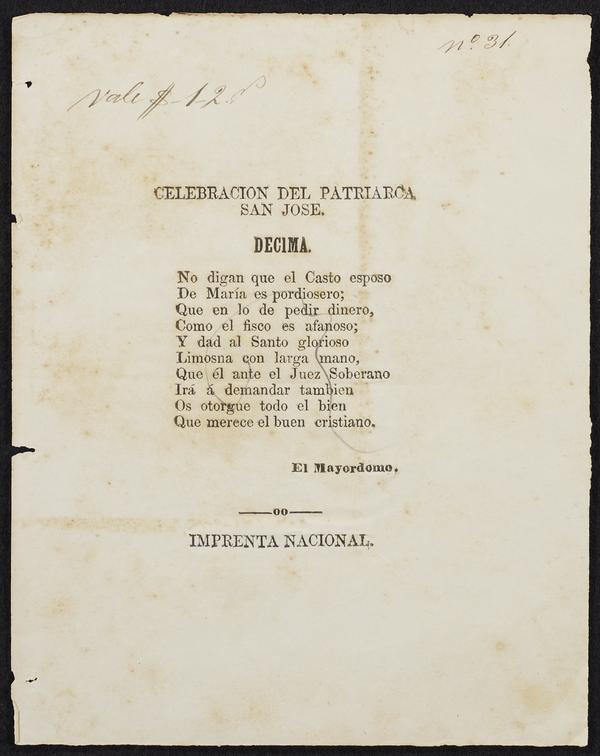 nº 31.
Vale $ 12.
CELEBRACION DEL PATRIARCA
SAN JOSE.
DECIMA.
No digan que el Casto esposo
De María es pordiosero;
Que en lo de pedir dinero,
Como el fisco es afanoso;
Y dad al Santo glorioso
Limosna con larga mano,
Que él ante el Juez Soberano
Irá á demandar tambien
Os otorgue todo el bien
Que merece el buen cristiano.
El Mayordomo.
oo
IMPRENTA NACIONAL.